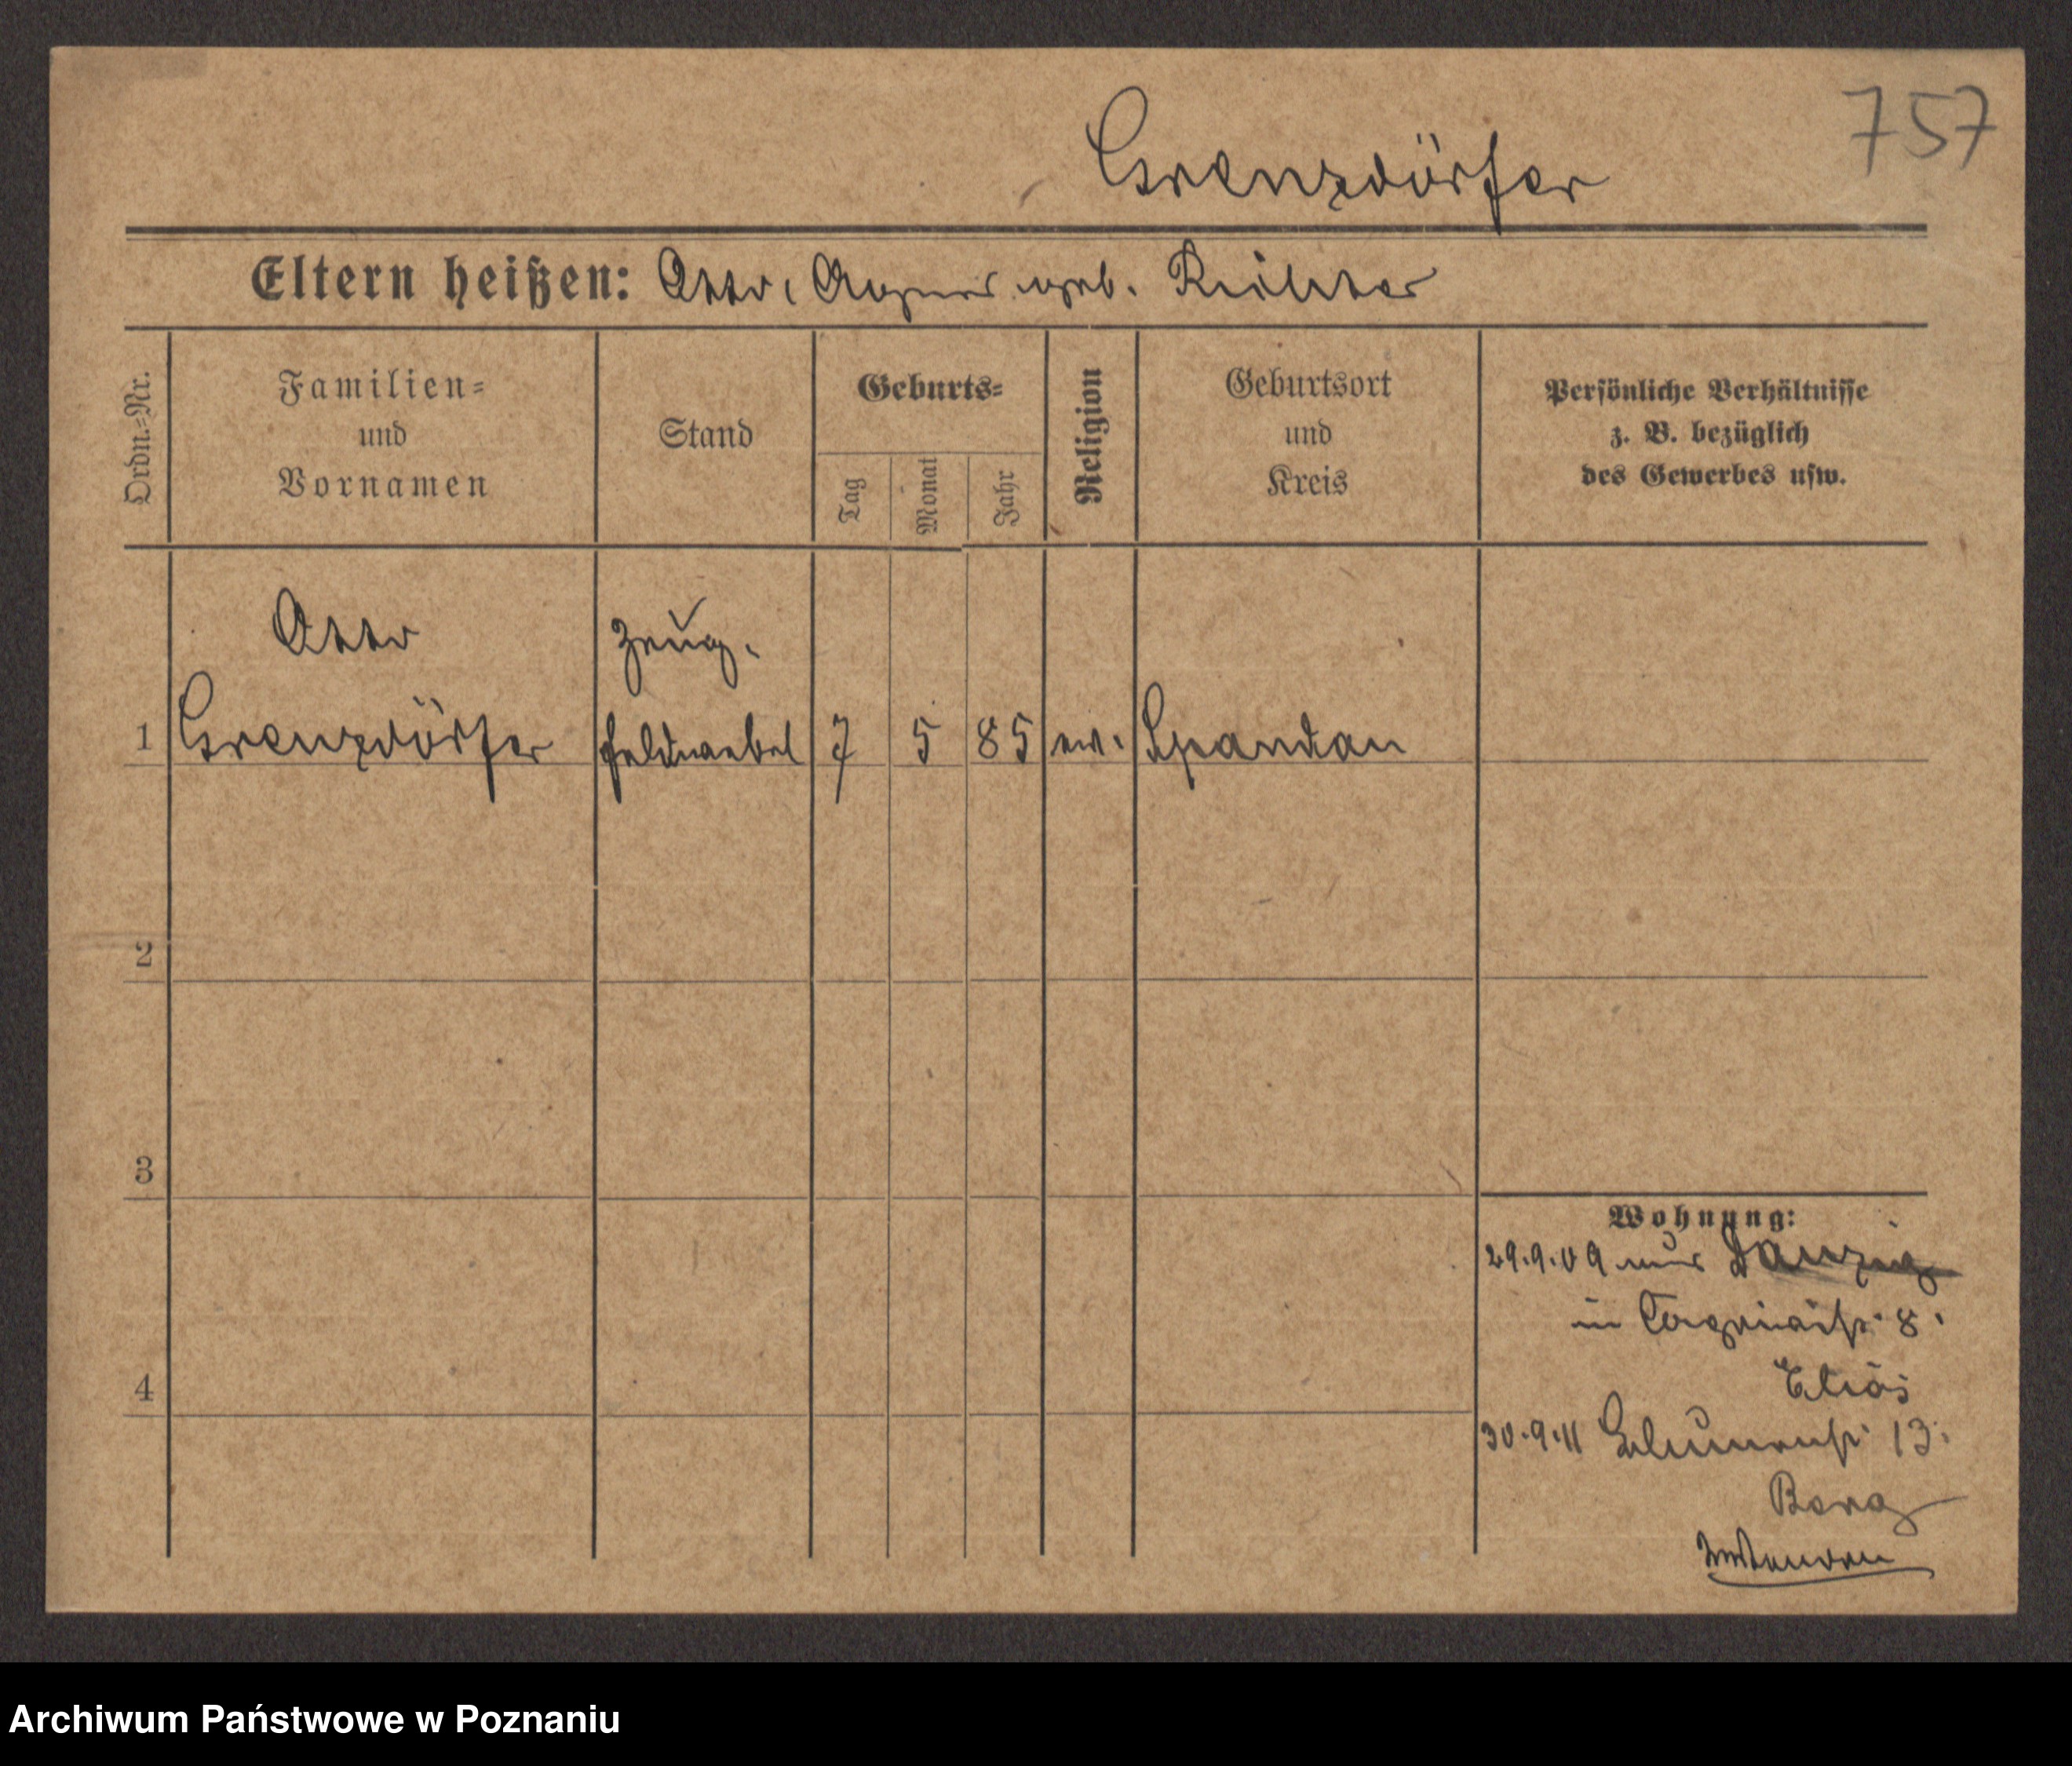 757
Grenzdörfer
Eltern heißen: Otto, Agnes geb. Richter
Ordn.=Nr.
Familien=
und
Vornamen
Stand
Geburts=
Tag
Monat
Jahr
Religion
Geburtsort
und
Kreis
Persönliche Verhältnisse
z. B. bezüglich
des Gewerbes usw.
Otto Zeug.
1 Grenzdörfer feldwebel 7 5 85 ev. Spandau
2
3
Wohnung:
29.9.09 aus Danzig
in 8.
4
30.9.11 Blumenstr. 13.
Berg
Archiwum Państwowe w Poznaniu